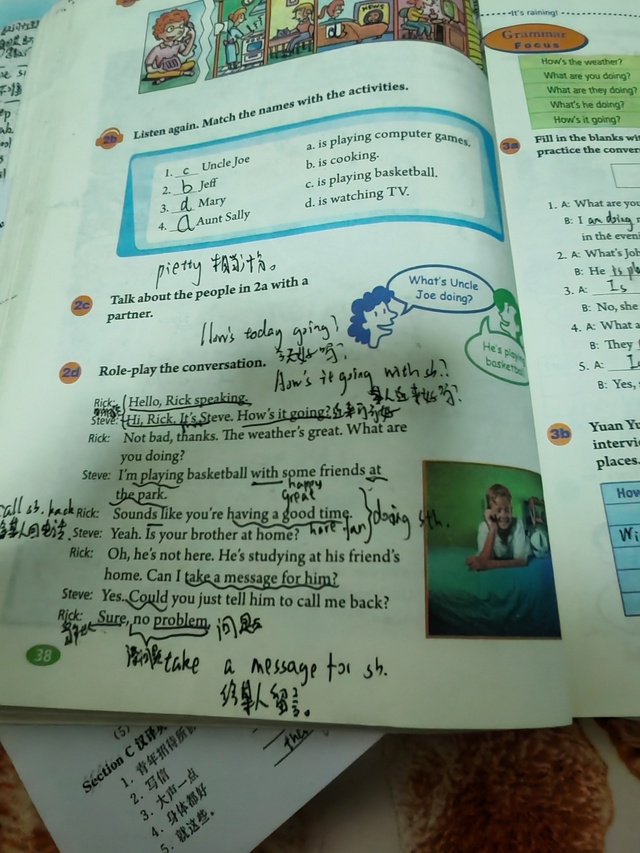 NEWS
2b
Listen again. Match the names with the activities.
1. c Uncle Joe
2. b Jeff
3. d Mary
4. a Aunt Sally
a. is playing computer games.
b. is cooking.
c. is playing basketball.
d. is watching TV.
2c
Talk about the people in 2a with a
partner.
What's Uncle
Joe doing?
He's playing
basketball
How's today going?
How's it going with sb.?
2d
Role-play the conversation.
Rick: Hello, Rick speaking.
Steve: Hi, Rick. It's Steve. How's it going?
Rick: Not bad, thanks. The weather's great. What are
you doing?
Steve: I'm playing basketball with some friends at
the park.
happy
great
call sb. back
Rick: Sounds like you're having a good time.
doing sth.
Steve: Yeah. Is your brother at home?
have fun
Rick: Oh, he's not here. He's studying at his friend's
home. Can I take a message for him?
Steve: Yes. Could you just tell him to call me back?
Rick: Sure, no problem.
问题
没问题
take a message for sb.
给某人留言。
38
It's raining!
Grammar
Focus
How's the weather?
What are you doing?
What are they doing?
What's he doing?
How's it going?
3a
Fill in the blanks wi
practice the conver
1. A: What are you
B: I am doing
in the eveni
2. A: What's Joh
B: He is pl
3. A: Is
B: No, she
4. A: What a
B: They
5. A:
B: Yes,
3b
Yuan Yu
intervi
places.
How
Wi
(5)
Section C 汉译英
1. 青年招待所
2. 写信
3. 大声一点
4. 身体都好
5. 就这些。